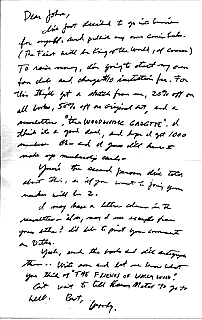 Dear John,
I've just decided to go into business
for myself, and publish my own comic books.
(The First will be King of the World, of course)
To raise money, I'm going to start my own
fan club and charge $10 initiation fee. For
this they'll get a sketch from me, 20% off on
all books, 50% off on original art, and a
newsletter, "The WOODWORK GAZETTE". I
think it's a good deal, and hope I get 1000
members. Oh and I guess I'll have to
make up membership cards.
You're the second person I've told
about this, so if you want to join, your
number will be 2.
I may have a letters column in the
newsletter. Also, may I use excerpts from
your letters? I'd like to print your comments
on Ditko.
Yeah, send the books and I'll autograph
them. Write soon and let me know what
you think of "THE FRIENDS OF WALLY WOOD".
Can't wait to tell to go to
hell. Best, Woody.